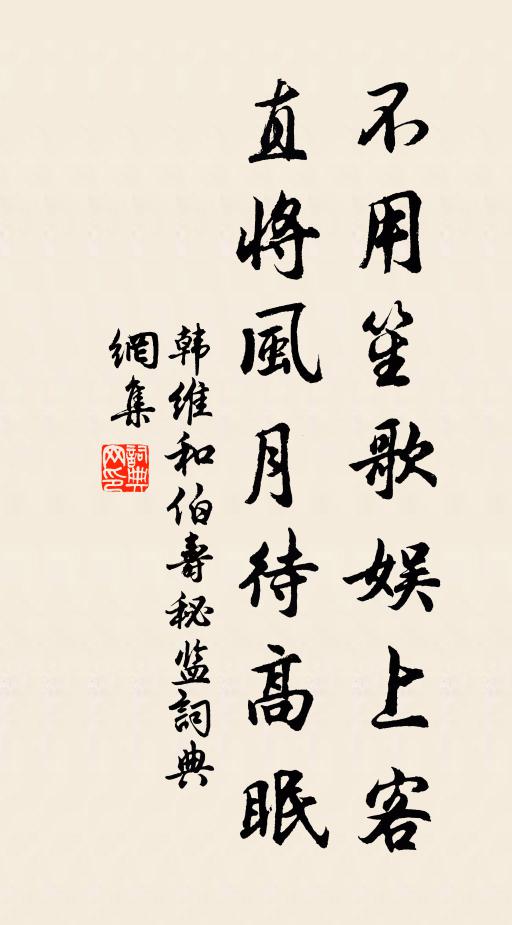 不用笙歌娛上客
直將風月待高眠
韩維和伯壽秘监詞典
網集
詞典
网印